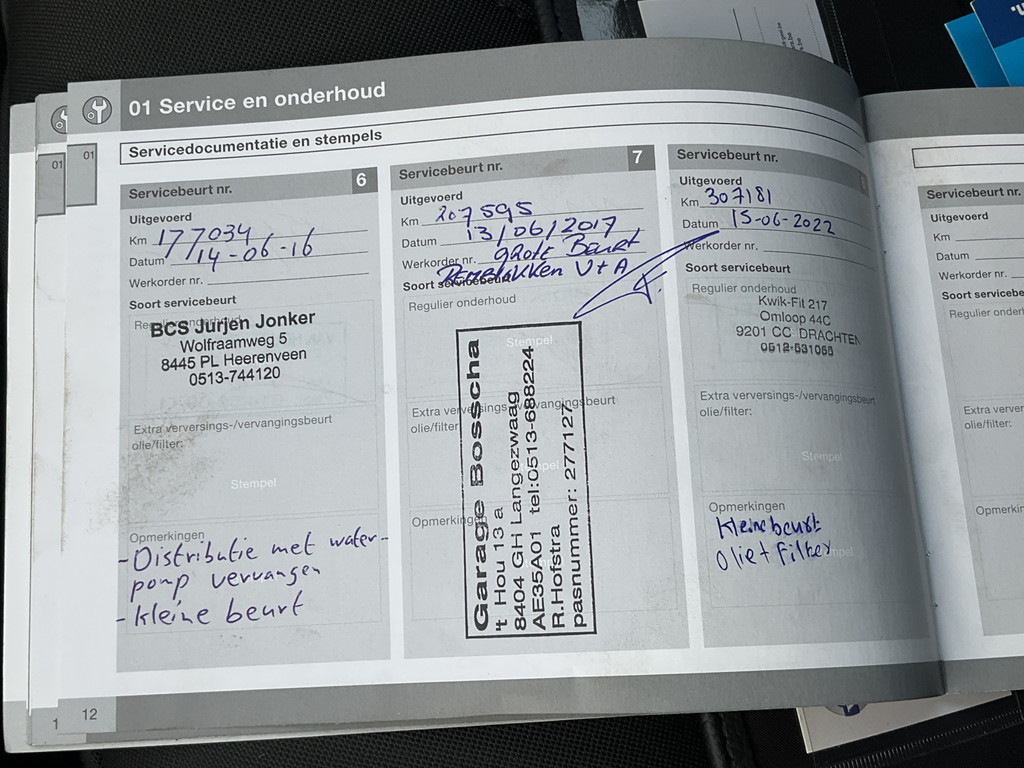 01 Service en onderhoud
Servicedocumentatie en stempels
01
01
Servicebeurt nr. 6
Uitgevoerd
Km 177034
Datum 14-06-16
Werkorder nr.
Soort servicebeurt
Regulier onderhoud
BCS Jurjen Jonker
Wolfraamweg 5
8445 PL Heerenveen
0513-744120
Extra verversings-/vervangingsbeurt
olie/filter:
Stempel
Opmerkingen
- Distributie met water-
pomp vervangen
- kleine beurt
12
1
Servicebeurt nr. 7
Uitgevoerd
Km 207595
Datum 13/06/2017
Werkorder nr. grote Beurt
Remblokken V+A
Soort servicebeurt
Regulier onderhoud
Stempel
Extra verversings-/vervangingsbeurt
olie/filter
Stempel
Opmerkingen
Garage Bosscha
't Hou 13 a
8404 GH Langezwaag
AE35A01 tel:0513-688224
R.Hofstra
pasnummer: 277127
Servicebeurt nr.
Uitgevoerd
Km 307181
Datum 15-06-2022
Werkorder nr.
Soort servicebeurt
Regulier onderhoud
Kwik-Fit 217
Omloop 44C
9201 CC DRACHTEN
0512-531065
Extra verversings-/vervangingsbeurt
olie/filter:
Stempel
Opmerkingen
Kleine beurt
Olie + Filter
Servicebeurt nr.
Uitgevoerd
Km
Datum
Werkorder nr.
Soort servicebe
Regulier onderh
Extra verver
olie/filter:
Opmerkin